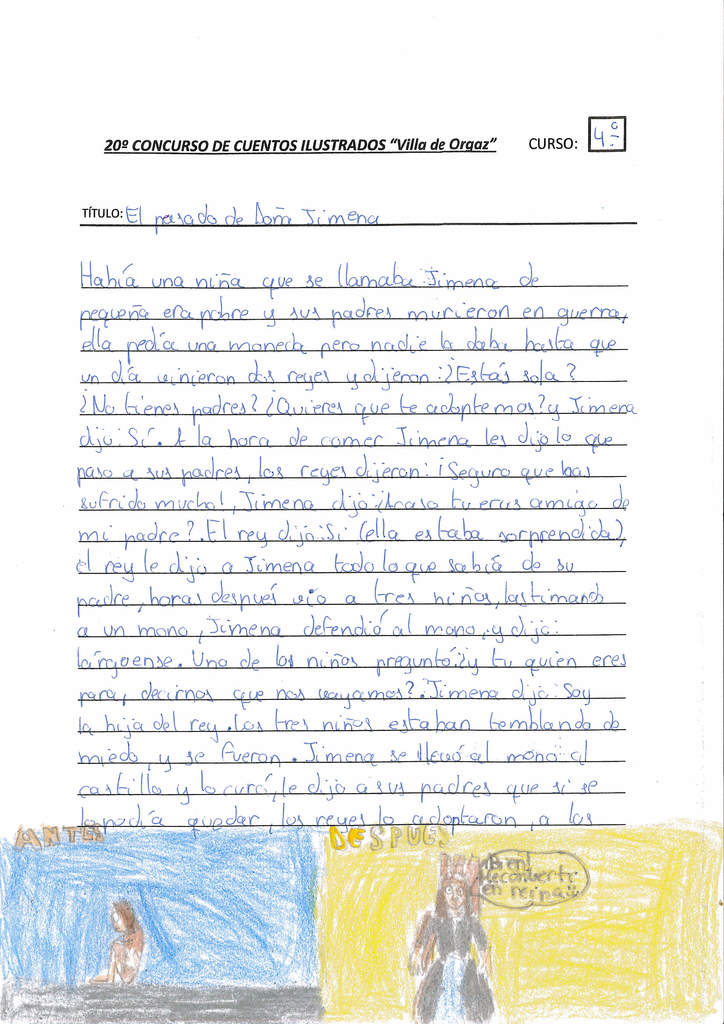 20º CONCURSO DE CUENTOS ILUSTRADOS "Villa de Orgaz" CURSO: 4º
TÍTULO: El pasado de Doña Jimena
Había una niña que se llamaba Jimena de
pequeña era pobre y sus padres murieron en guerra,
ella pedía una moneda pero nadie la daba hasta que
un día vinieron dos reyes y dijeron: ¿Estás sola?
¿No tienes padres? ¿Quieres que te adoptemos? y Jimena
dijo: Sí. A la hora de comer Jimena les dijo lo que
paso a sus padres, los reyes dijeron: ¡Seguro que has
sufrido mucho!, Jimena dijo: ¿Acaso tu eras amigo de
mi padre?. El rey dijo: Si (ella estaba sorprendida),
el rey le dijo a Jimena todo lo que sabía de su
padre, horas después vio a tres niños, lastimando
a un mono, Jimena defendió al mono, y dijo:
largoense. Uno de los niños preguntó: ¿y tu quien eres
para, decirnos que nos vayamos?. Jimena dijo: Soy
la hija del rey. Los tres niños estaban temblando de
miedo, y se fueron. Jimena se llevó al mono al
castillo y lo curó, le dijo a sus padres que si se
lo podía quedar, los reyes lo adoptaron, a los
ANTES DESPUES
¡Bien!
Me converti
en reina